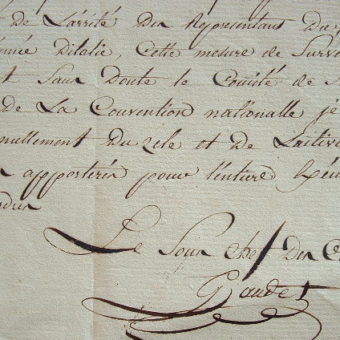 de L'arrêté Du Representant Du
Ditalie, Cette mesure de Surv
t Sans Doute le Comité de S
de La Convention nationalle je
nullement Du Zele et de L'activi
apporteréz pour l'entiere Exé
Le Sous Chef Du C
Gaudet